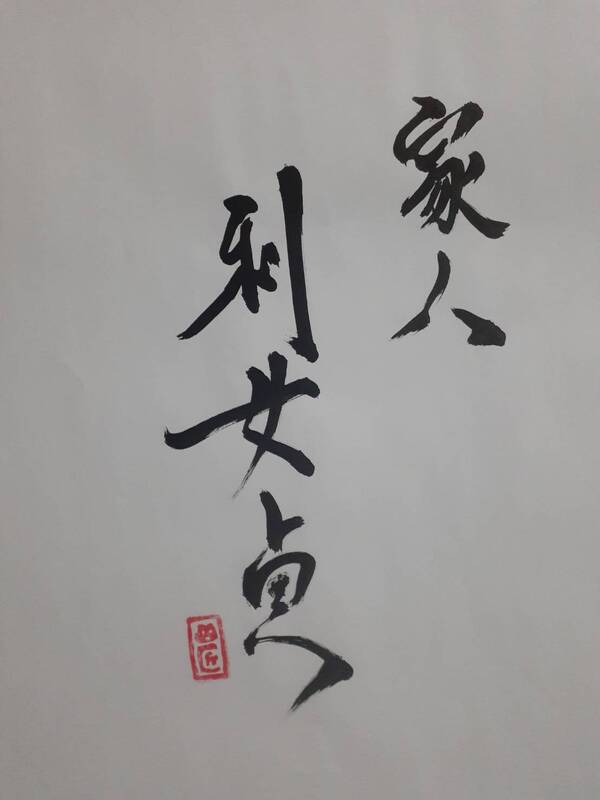 家人
利女貞